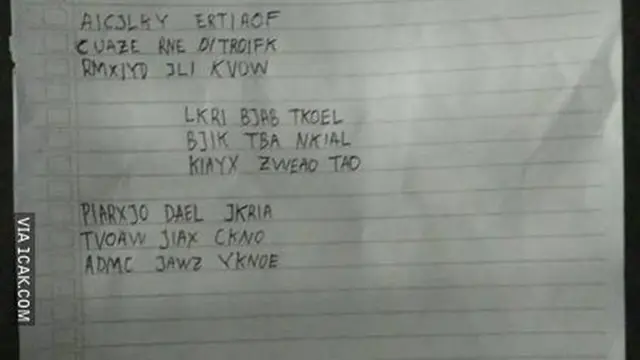 AICJLKY ERTIAOF
CUAZE RNE O/TROIFK
RMXIYD JLI KVOW
LKRI BJAB TKOEL
BJIK TBA NKIAL
KIAYX ZWEAO TAO
PIARXJO DAEL JKRIA
TVOAW JIAX CKNO
ADMC JAWZ YKNOE
VIA 1CAK.COM